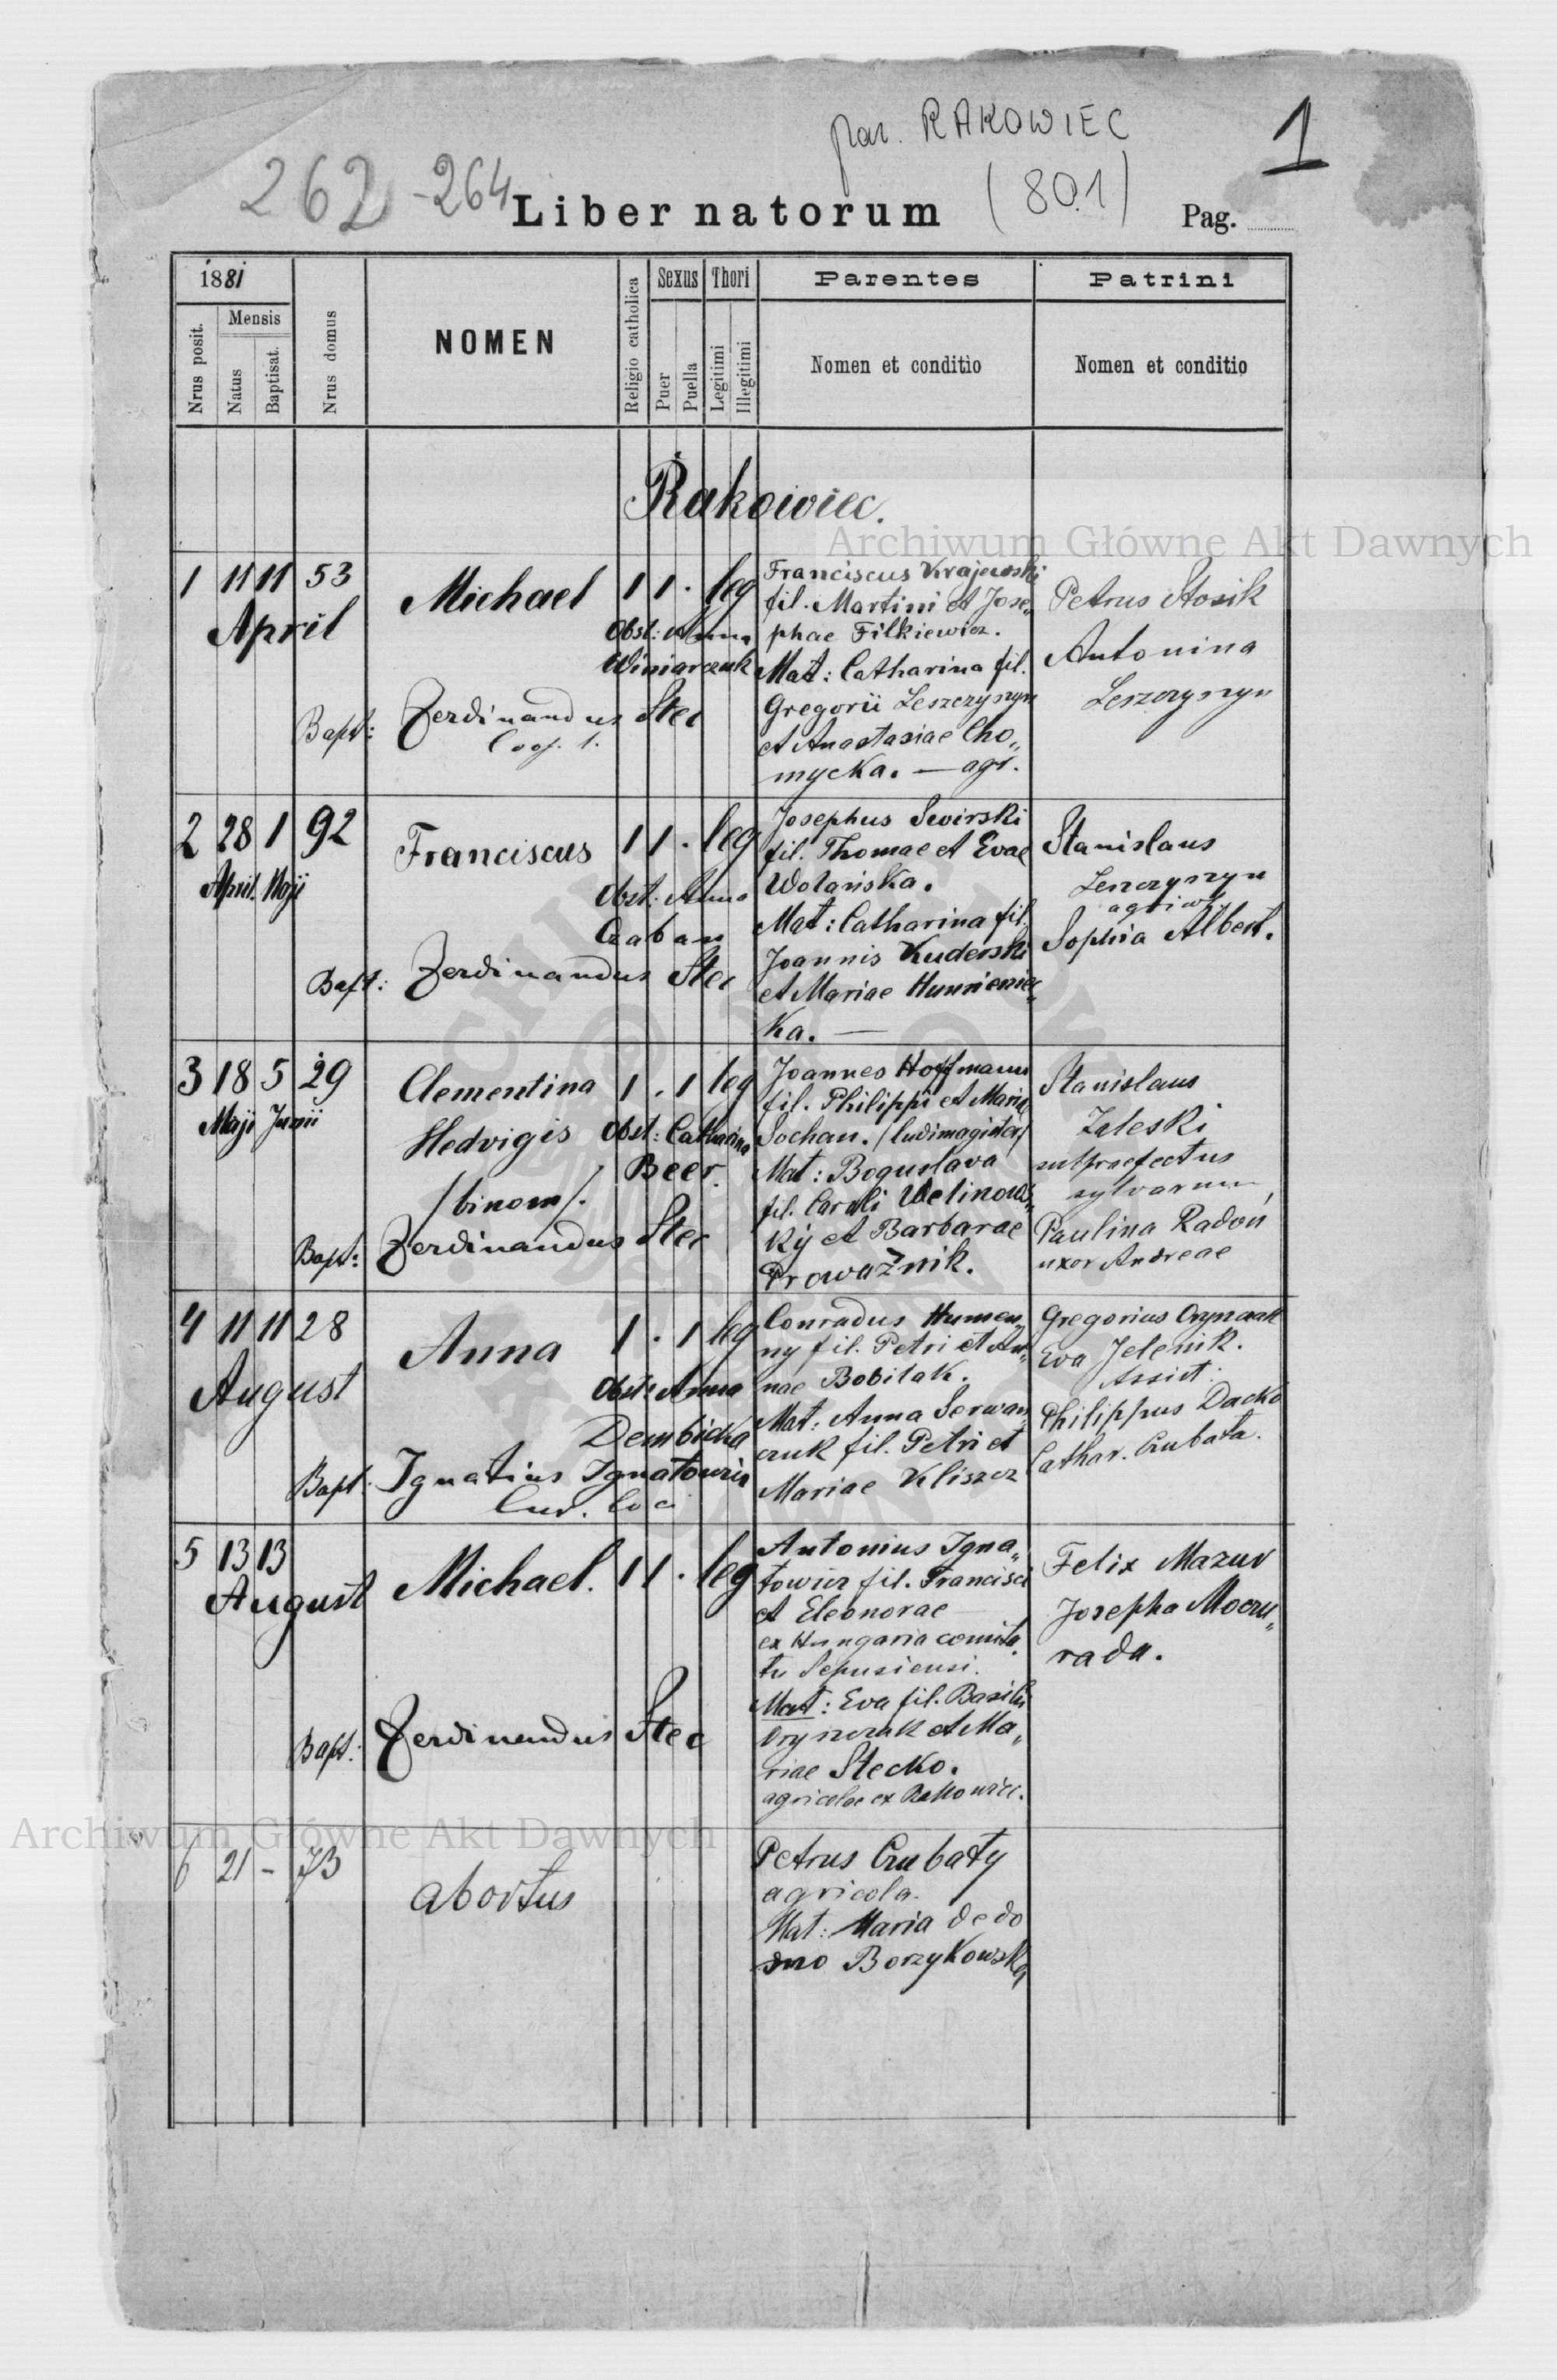 par. RAKOWIEC
1
262-264
Liber natorum
(801)
Pag.
1881
Nrus posit.
Mensis
Natus
Baptisat.
Nrus domus
NOMEN
Religio catholica
Sexus
Puer
Puella
Thori
Legitimi
Illegitimi
Parentes
Nomen et conditio
Patrini
Nomen et conditio
Rakowiec.
Archiwum Główne Akt Dawnych
1 11 11 53
April
Michael
1 1 . leg
Obst: Anna
Winiarczuk
Bapt: Ferdinandus Stec
Coop. l.
Franciscus Krajewski
fil. Martini et Jose„
phae Filkiewicz.
Mat: Catharina fil.
Gregorii Leszczyszyn
et Anastasiae Cho„
mycka. — agr.
Petrus Stosik
Antonina
Leszczyszyn
2 28 1 92
April. Maji
Franciscus
1 1 . leg
Obst: Anna
Czaban
Bapt: Ferdinandus Stec
Josephus Swirski
fil. Thomae et Evae
Wolańska.
Mat: Catharina fil.
Joannis Kuderski
et Mariae
ka. —
Stanislaus
Leszczyszyn
Sophia Albert.
3 18 5 29
Maji Junii
Clementina
Hedvigis
/binom/.
1 . 1 leg
Obst: Catharina
Beer.
Bapt: Ferdinandus Stec
Joannes Hoffmann
fil. Philippi et Mariae
Sochan. /ludimagister/
Mat: Boguslava
fil. Caroli Welinows„
ky et Barbarae
Prowažnik.
Stanislaus
Zaleski
subpraefectus
sylvarum,
Paulina Radoń
uxor Andreae
4 11 11 28
August
Anna
1 . 1 leg
Obst: Anna
Dembicka
Bapt. Ignatius Ignatowicz
Cur. loci
Conradus Humen„
ny fil. Petri et An„
nae Bobilak.
Mat: Anna Serwan„
czuk fil. Petri et
Mariae Kliszcz
Gregorius Oryszczak
Eva Jelenik.
Assist:
Philippus Dacko
Cathar. Czubata.
5 13 13
August
Michael.
1 1 . leg
Bapt: Ferdinandus Stec
Antonius Igna„
towicz fil. Francisci
et Eleonorae —
ex Hungaria comita„
tu Sepusiensi.
Mat: Eva fil. Basilii
Oryszczak et Ma„
riae Stecko.
agricolae ex Rakowiec.
Felix Mazur
Josepha Moczu„
rada.
Archiwum Główne Akt Dawnych
6 21 - 73
abortus
Petrus Czubaty
agricola.
Mat: Maria de do
mo Borzykowska